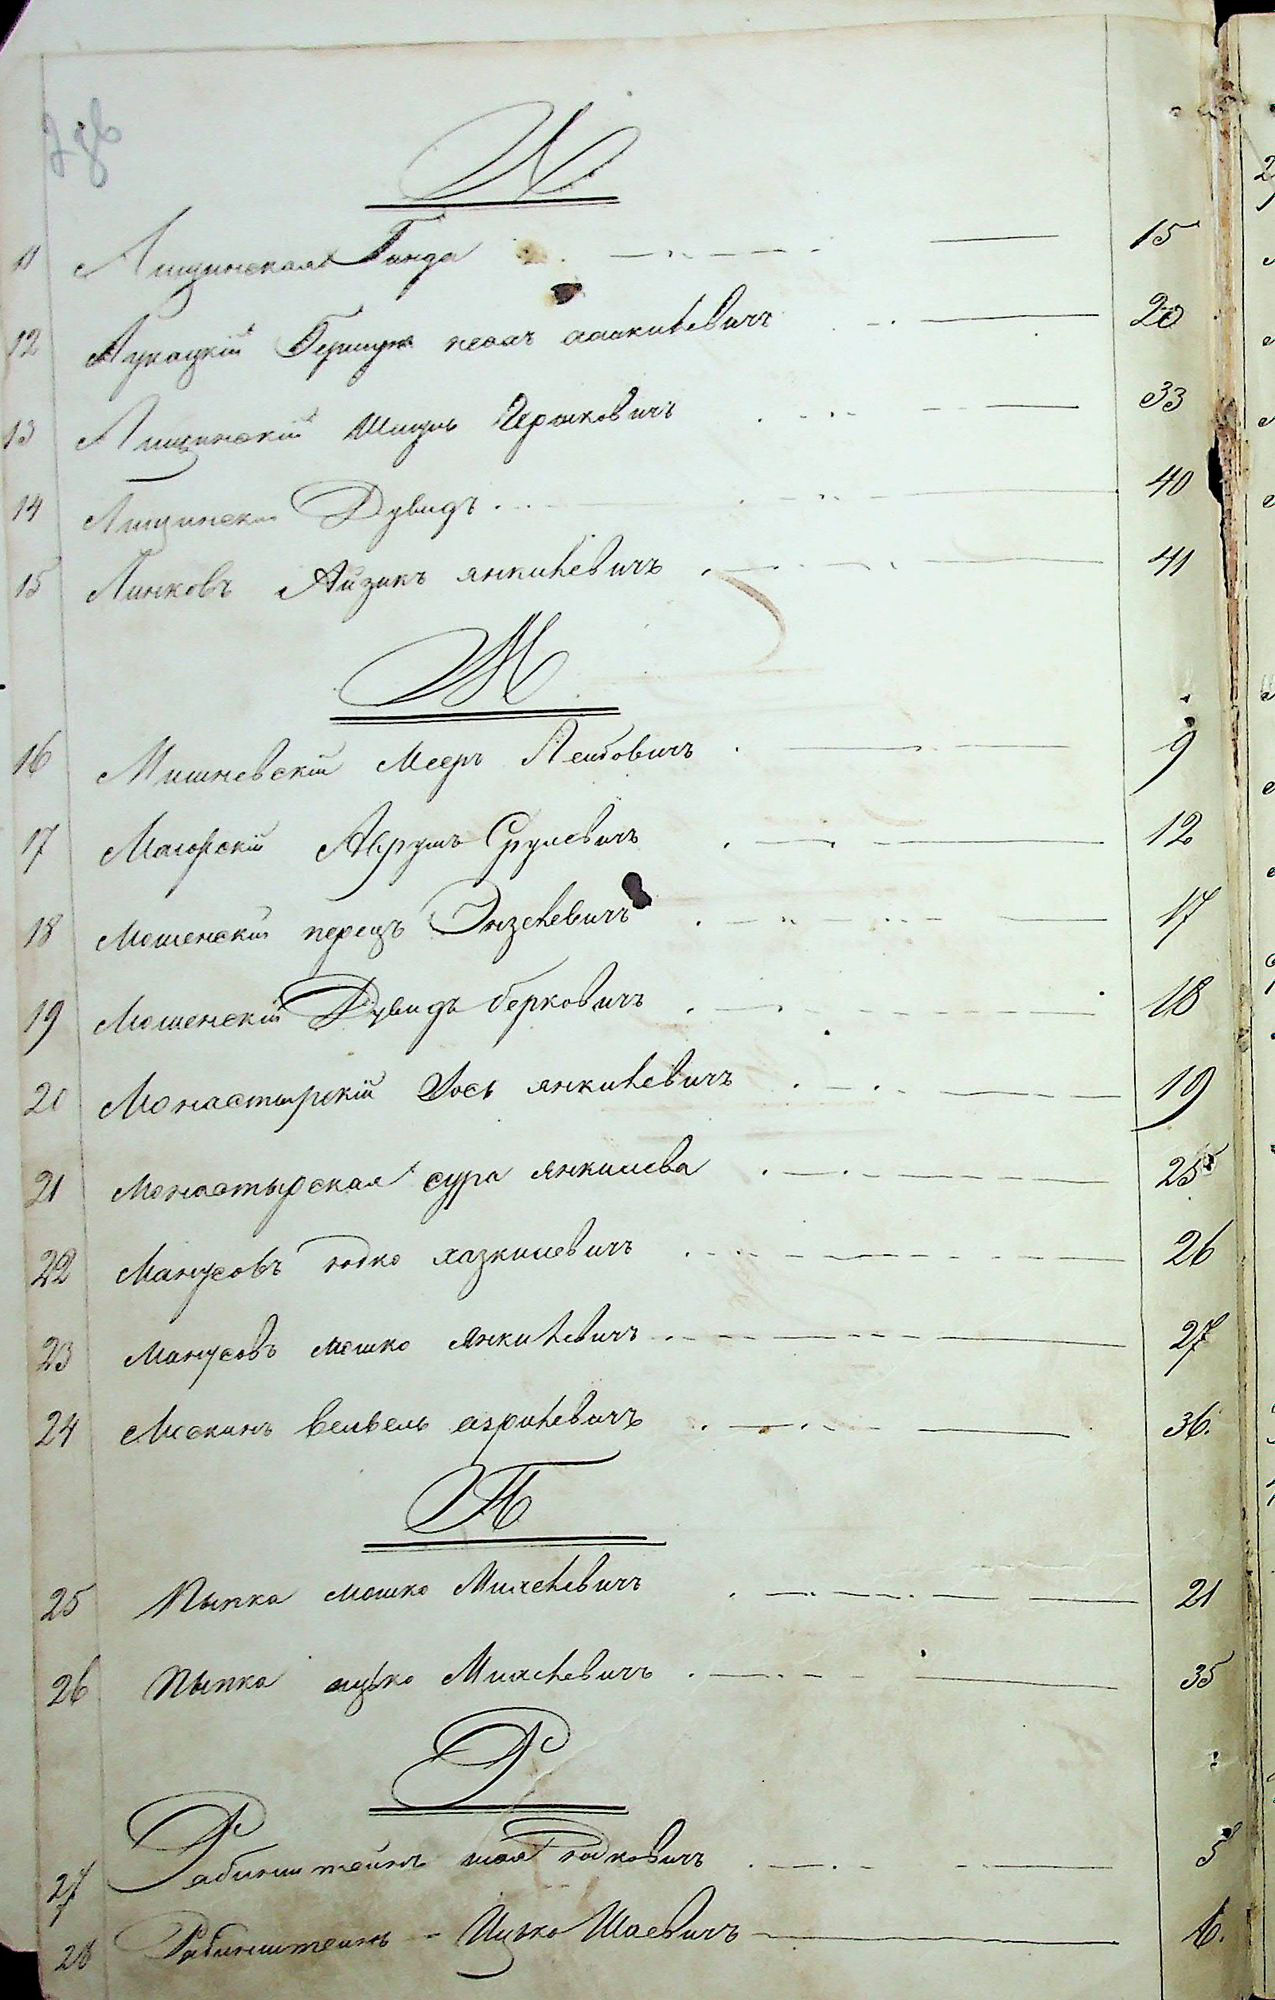 Л
11 Лищинская Гинда 15
12 Лупацкій Гершун 20
13 Лищинскій Шицъ Герсковичъ 33
14 Лищински Дувидъ 40
15 Линковъ Айзикъ янкилевичъ 41
М
16 Мишневскій Мееръ Лейбовичъ 9
17 Магорскій Аврумъ Срулевичъ 12
18 Мошенскій перецъ 17
19 Мошенскій Дувидъ берковичъ 18
20 Монастырскій Іось янкилевичъ 19
21 Монастырская сура янкилева 25
22 Манусовъ юдко хазкилевичъ 26
23 Манусовъ мошко янкилевичъ 27
24 Мескинъ вельвель азрилевичъ 36.
П
25 Пыпка мошко Михелевичъ 21
26 Пыпка ицько Михелевичъ 35
Р
27 Рабинштейнъ шая юдковичъ 5
28 Рабинштейнъ - Ицько Шаевичъ 6.